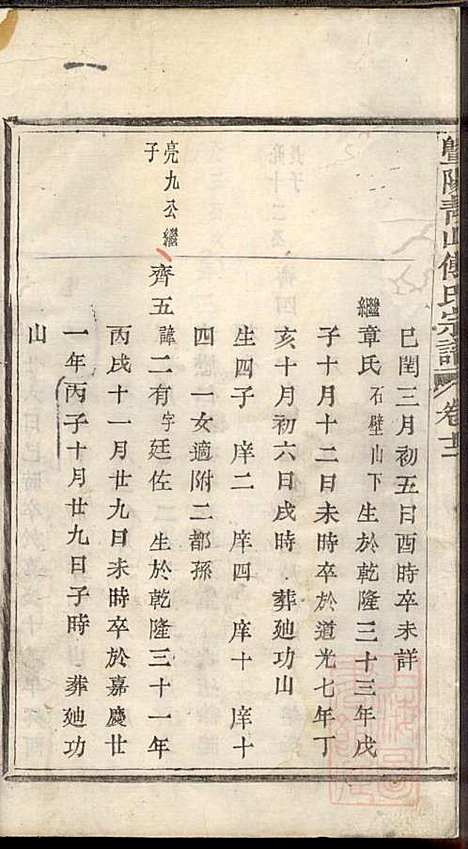 暨陽青山傅氏宗譜 卷十二
巳閏三月初五日酉時卒未詳
繼章氏石壁山下生於乾隆三十三年戊
子十月十二日未時卒於道光七年丁
亥十月初六日戌時葬廸功山
生四子 庠二 庠四 庠十 庠十
四 一女適附二都孫
亮九公繼
子
齊五諱二有字廷佐二生於乾隆三十一年
丙戌十一月廿九日未時卒於嘉慶廿
一年丙子十月廿九日子時葬廸功
山
一